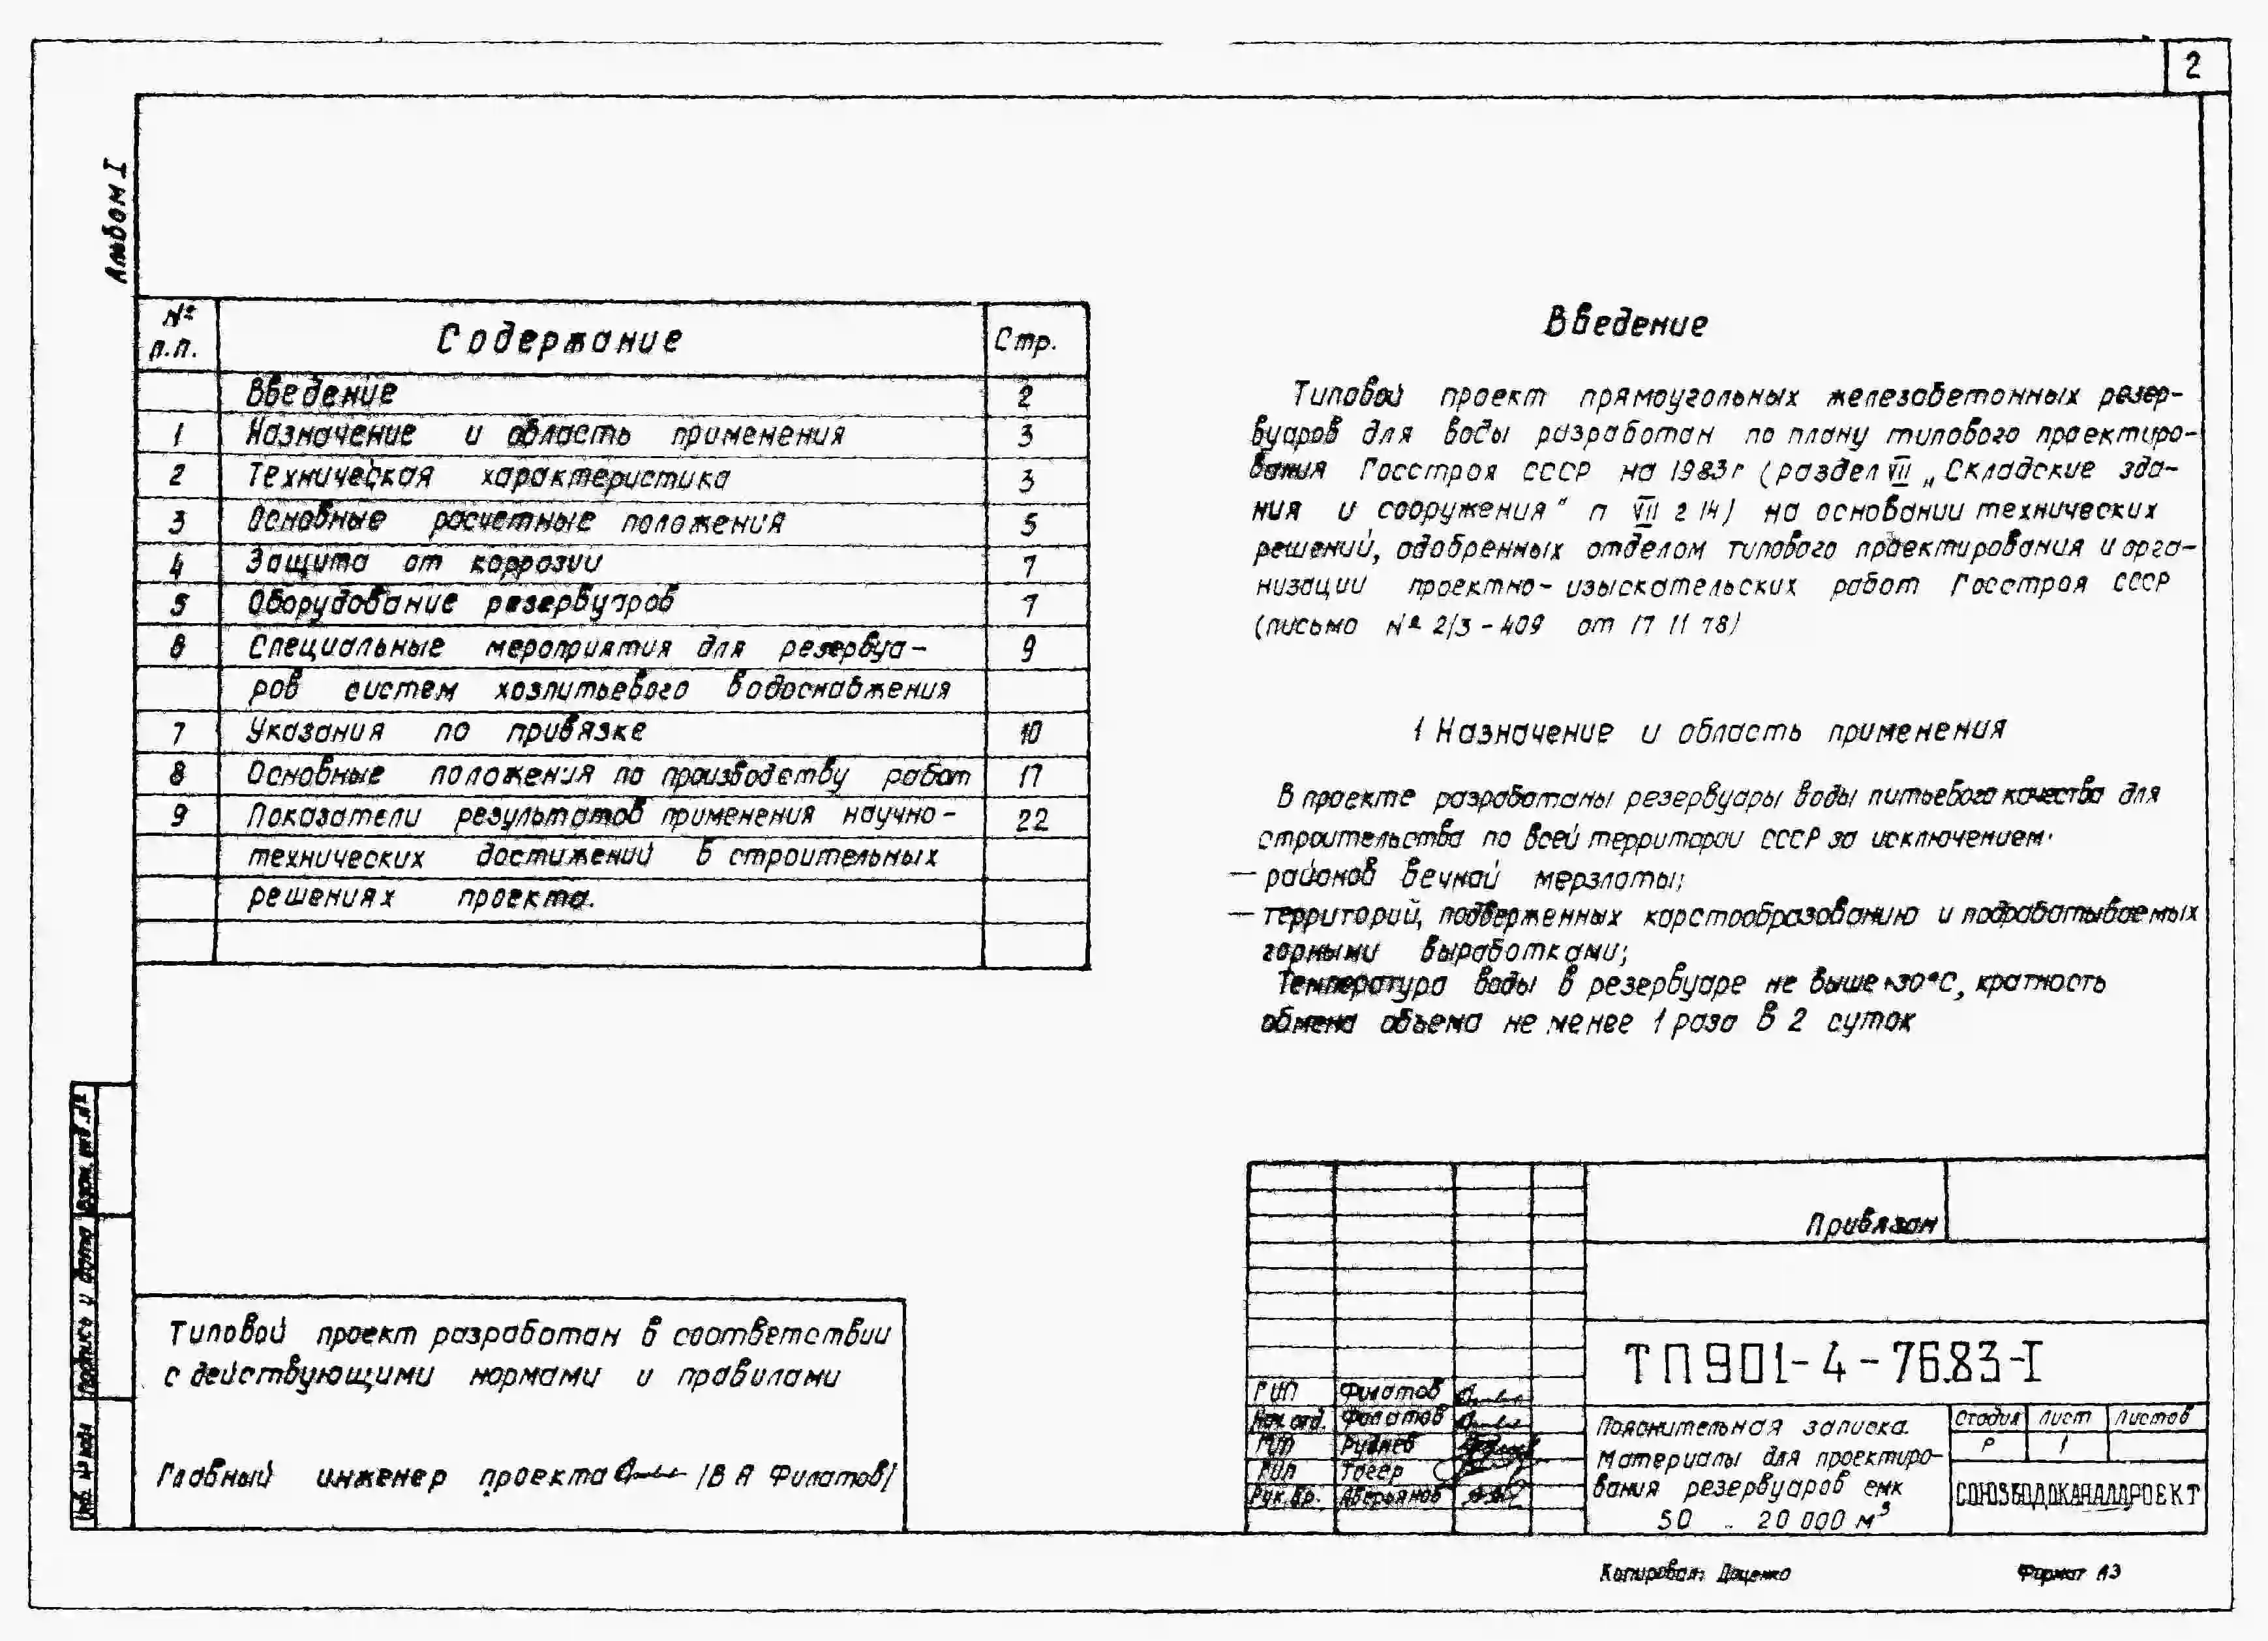 2
Альбом I
№ п.п. Содержание Стр.
Введение 2
1 Назначение и область применения 3
2 Техническая характеристика 3
3 Основные расчетные положения 5
4 Защита от коррозии 7
5 Оборудование резервуаров 7
6 Специальные мероприятия для резервуа- 9
ров систем хозпитьевого водоснабжения
7 Указания по привязке 10
8 Основные положения по производству работ 17
9 Показатели результатов применения научно- 22
технических достижений в строительных
решениях проекта.
Типовой проект разработан в соответствии
с действующими нормами и правилами
Главный инженер проекта /В А Филатов/
Введение
Типовой проект прямоугольных железобетонных резер-
вуаров для воды разработан по плану типового проектиро-
вания Госстроя СССР на 1983г (раздел VII „Складские зда-
ния и сооружения" п VII 2 14) на основании технических
решений, одобренных отделом типового проектирования и орга-
низации проектно-изыскательских работ Госстроя СССР
(письмо № 2/3-409 от 17 11 78)
1 Назначение и область применения
В проекте разработаны резервуары воды питьевого качества для
строительства по всей территории СССР за исключением:
— районов вечной мерзлоты;
— территорий, подверженных карстообразованию и подрабатываемых
горными выработками;
Температура воды в резервуаре не выше +30°С, кратность
обмена объема не менее 1 раза в 2 суток
Привязан
ТП 901-4-76.83-I
ГИП Филатов
Нач. отд. Филатов
ГИП Руднев
ГИП Гогер
Рук. бр. Аверьянов
Пояснительная записка.
Материалы для проектиро-
вания резервуаров емк
50 .. 20 000 м³
Стадия Лист Листов
Р 1
СОЮЗВОДОКАНАЛПРОЕКТ
Инв. № подл Подпись и дата Взам. инв. №
Копировал: Доценко Формат А3